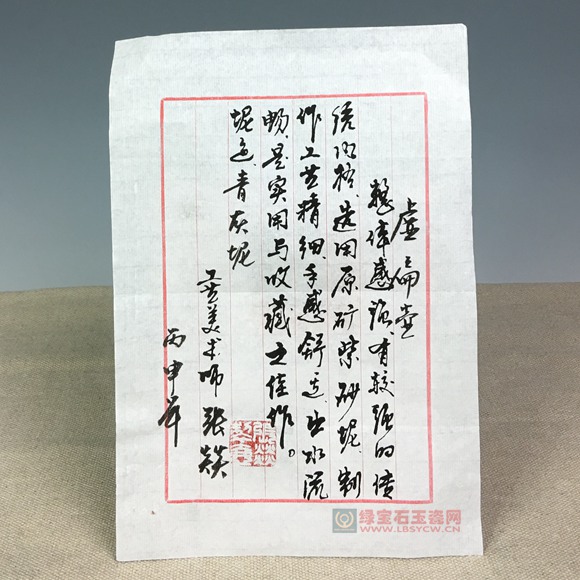 虚扁壶
整体感强、有较强的传
统风格、选用原矿紫砂泥、制
作工艺精细、手感舒适、出水流
畅、是实用与收藏之佳作。
坭色、青灰坭
工艺美术师 张燚
丙申年
绿宝石玉瓷网
WWW.LBSYCW.CN